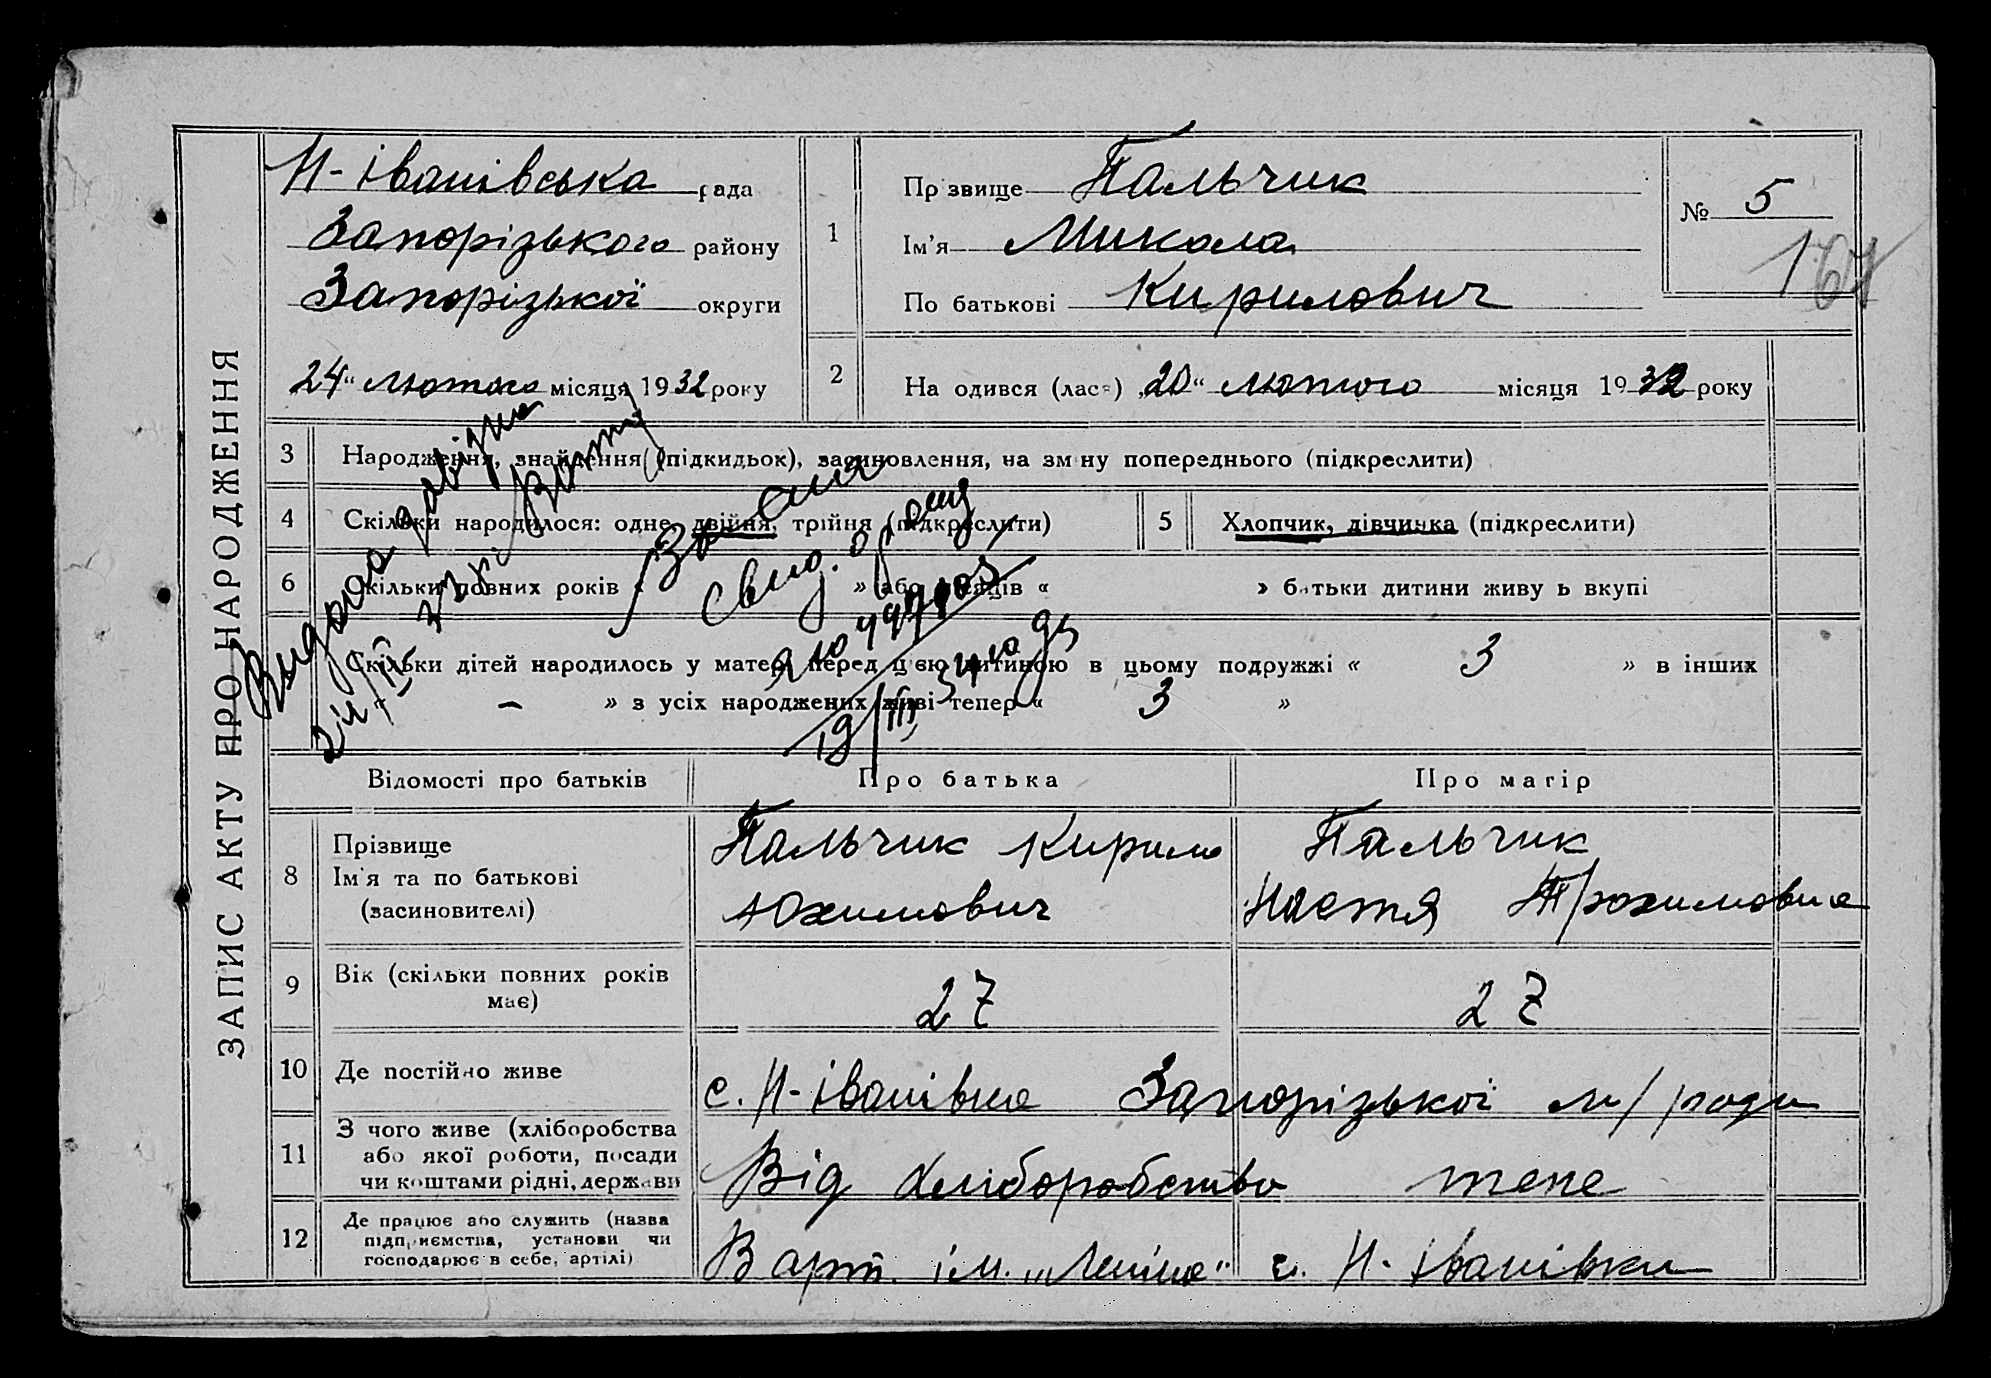 ЗАПИС АКТУ ПРО НАРОДЖЕННЯ
Н-Іванівська рада
Запорізького району
Запорізької округи
24" лютого місяця 1932 року
1
Прізвище Пальчик
Ім'я Микола
По батькові Кирилович
№ 5
167
2
На одився (лася) „20" лютого місяця 1932 року
3
Народження, знайдення (підкидьок), засиновлення, на зміну попереднього (підкреслити)
4
Скільки народилося: одне, двійня, трійня (підкреслити)
5
Хлопчик, дівчинка (підкреслити)
6
Скільки повних років « » або місяців « » батьки дитини живуть вкупі
Скільки дітей народилось у матері перед цією дитиною в цьому подружжі « 3 » в інших
« – » з усіх народжених живі тепер « 3 »
Видана довідка
19/III
Відомості про батьків
Про батька
Про матір
8
Прізвище
Ім'я та по батькові
(засиновителі)
Пальчик Кирило
Юхимович
Пальчик
Настя Трохимовна
9
Вік (скільки повних років
має)
27
27
10
Де постійно живе
с. Н-Іванівка Запорізької м/ради
11
З чого живе (хліборобства
або якої роботи, посади
чи коштами рідні, держави
Від хліборобства теж
12
Де працює або служить (назва
підприємства, установи чи
господарює в себе, артілі)
В арт. ім. „Леніна" с. Н-Іванівки